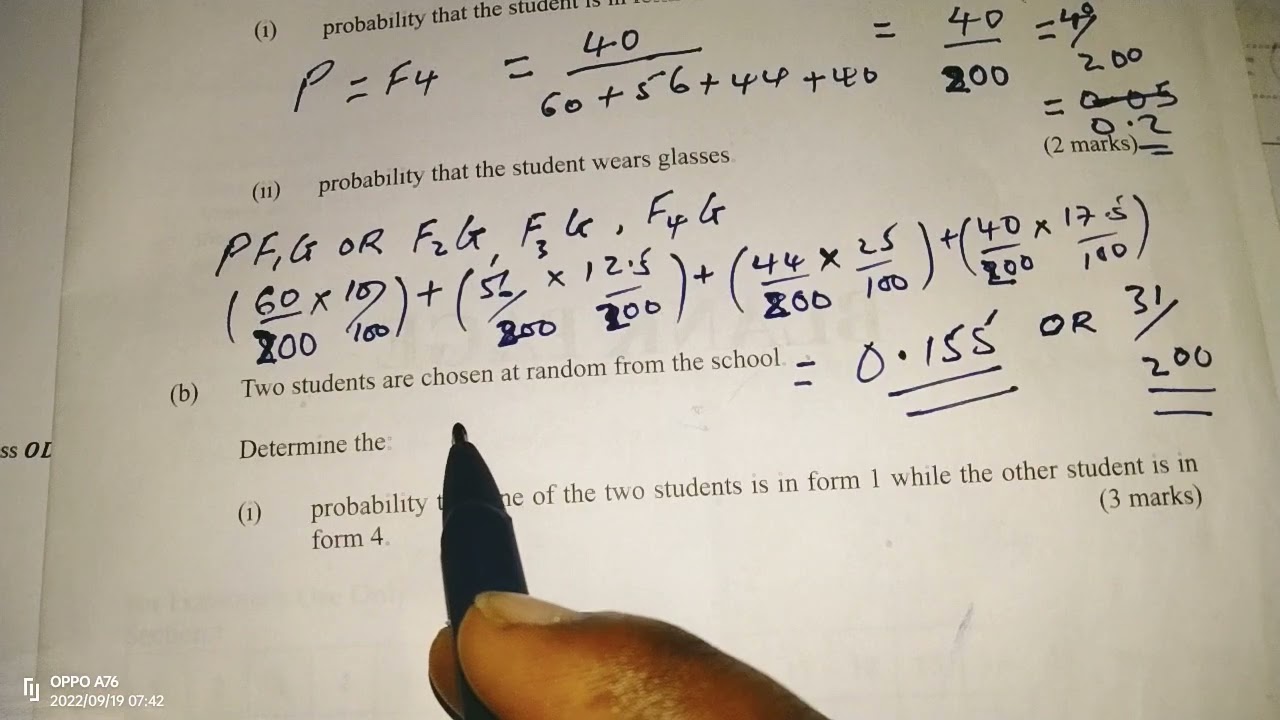 (i) probability that the student is in
P = F4 = 40 / 60 + 56 + 44 + 40 = 40 / 200 = 40/200
= 0.05
0.2
(2 marks)
(ii) probability that the student wears glasses
PF1G OR F2G, F3G, F4G
(60/200 × 10/100) + (56/200 × 12.5/200) + (44/200 × 25/100) + (40/200 × 17.5/100)
= 0.155 OR 31/200
(b) Two students are chosen at random from the school.
ss OD
Determine the:
(i) probability of the two students is in form 1 while the other student is in
form 4.
(3 marks)
OPPO A76
2022/09/19 07:42